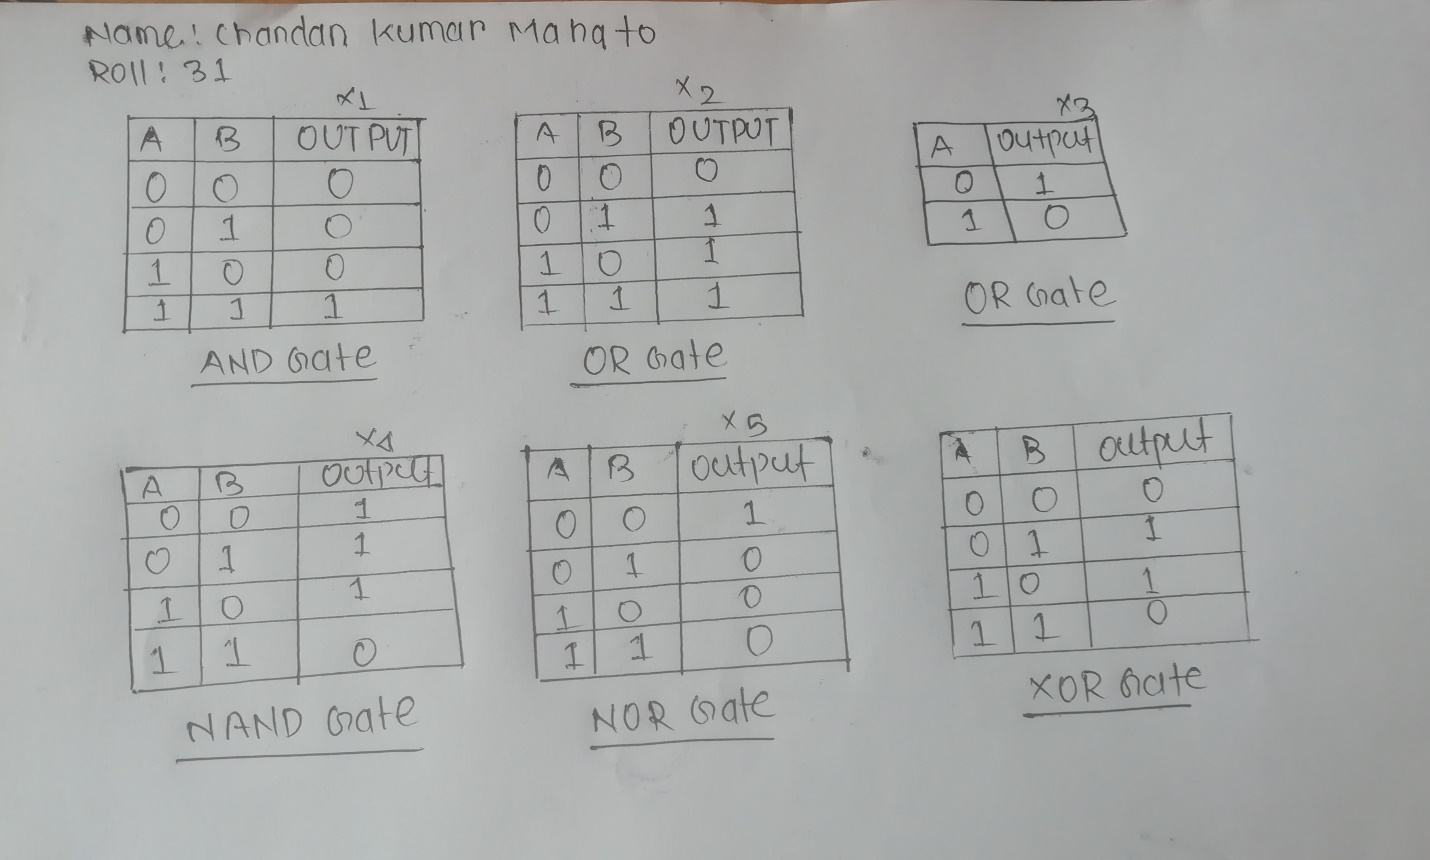 Name: Chandan Kumar Mahato
Roll: 31
x1
A B OUTPUT
0 0 0
0 1 0
1 0 0
1 1 1
AND Gate
x2
A B OUTPUT
0 0 0
0 1 1
1 0 1
1 1 1
OR Gate
x3
A output
0 1
1 0
OR Gate
x4
A B output
0 0 1
0 1 1
1 0 1
1 1 0
NAND Gate
x5
A B output
0 0 1
0 1 0
1 0 0
1 1 0
NOR Gate
A B output
0 0 0
0 1 1
1 0 1
1 1 0
XOR Gate